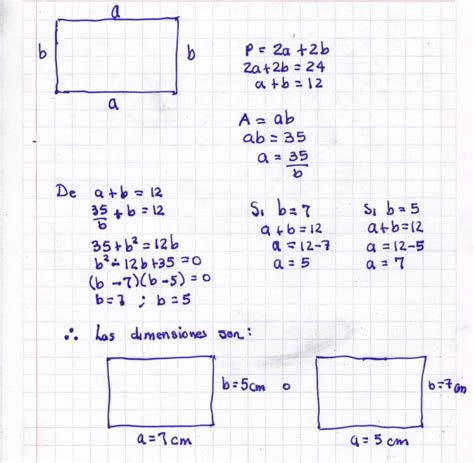 a
b
b
a
P = 2a + 2b
2a+2b = 24
a + b = 12
A = ab
ab = 35
a = 35/b
De a+b = 12
35/b + b = 12
35 + b² = 12b
b² - 12b + 35 = 0
(b - 7)(b - 5) = 0
b = 7 ; b = 5
Si b = 7
a + b = 12
a = 12-7
a = 5
Si b = 5
a+b = 12
a = 12-5
a = 7
∴ Las dimensiones son:
b = 5cm o
a = 7cm
b = 7cm
a = 5cm